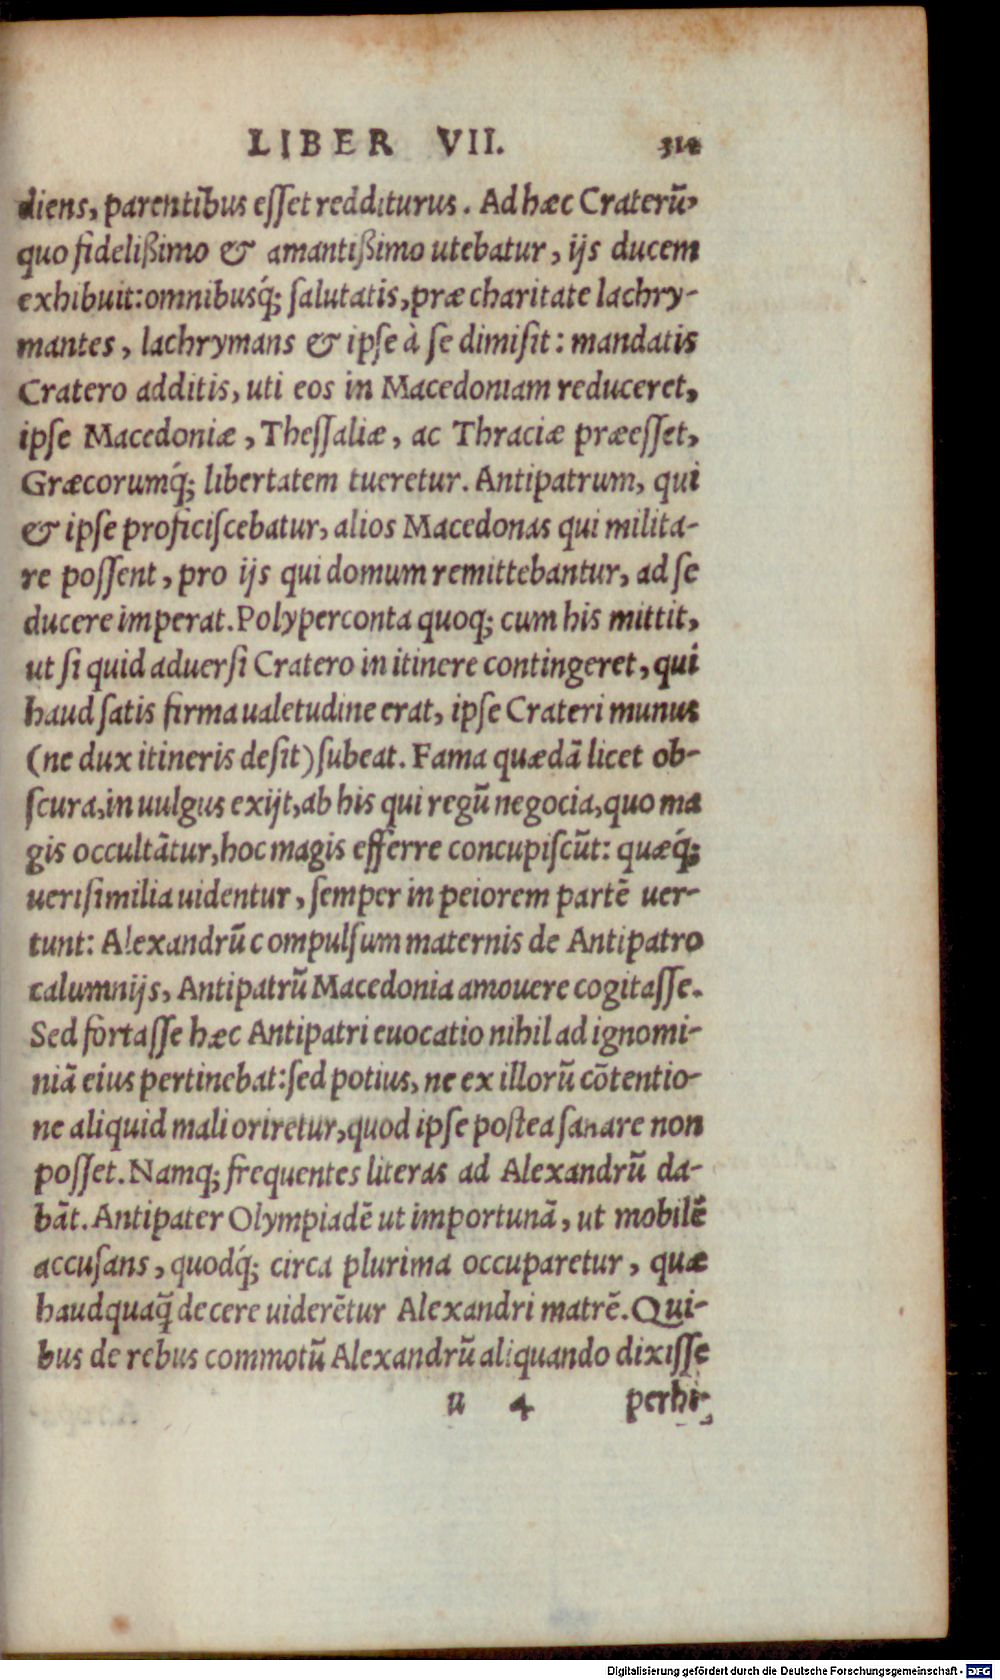 LIBER VII. 312
diens, parentibus esset redditurus. Ad hæc Craterũ,
quo fidelißimo & amantißimo utebatur, ijs ducem
exhibuit: omnibusq́; salutatis, præ charitate lachry-
mantes, lachrymans & ipse à se dimisit: mandatis
Cratero additis, uti eos in Macedoniam reduceret,
ipse Macedoniæ, Thessaliæ, ac Thraciæ præesset,
Græcorumq́; libertatem tueretur. Antipatrum, qui
& ipse proficiscebatur, alios Macedonas qui milita-
re possent, pro ijs qui domum remittebantur, ad se
ducere imperat. Polyperconta quoq; cum his mittit,
ut si quid aduersi Cratero in itinere contingeret, qui
haud satis firma ualetudine erat, ipse Crateri munus
(ne dux itineris desit) subeat. Fama quædã licet ob-
scura, in uulgus exijt, ab his qui regũ negocia, quo ma
gis occultãtur, hoc magis efferre concupiscũt: quæq́;
uerisimilia uidentur, semper in peiorem partẽ uer-
tunt: Alexandrũ compulsum maternis de Antipatro
calumnijs, Antipatrũ Macedonia amouere cogitasse.
Sed fortasse hæc Antipatri euocatio nihil ad ignomi-
niã eius pertinebat: sed potius, ne ex illorũ cõtentio-
ne aliquid mali oriretur, quod ipse postea sanare non
posset. Namq; frequentes literas ad Alexandrũ da-
bãt. Antipater Olympiadẽ ut importunã, ut mobilẽ
accusans, quodq́; circa plurima occuparetur, quæ
haudquaq̃ decere uiderẽtur Alexandri matrẽ. Qui-
bus de rebus commotũ Alexandrũ aliquando dixisse
u 4 perhi-
Digitalisierung gefördert durch die Deutsche Forschungsgemeinschaft - DFG